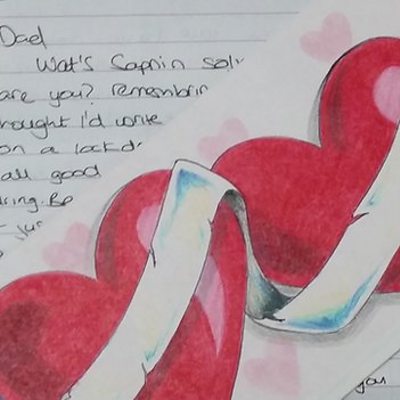 Dad
Wat's Sapnin
are you? remembrin
thought I'd write
on a lockd
all good
you